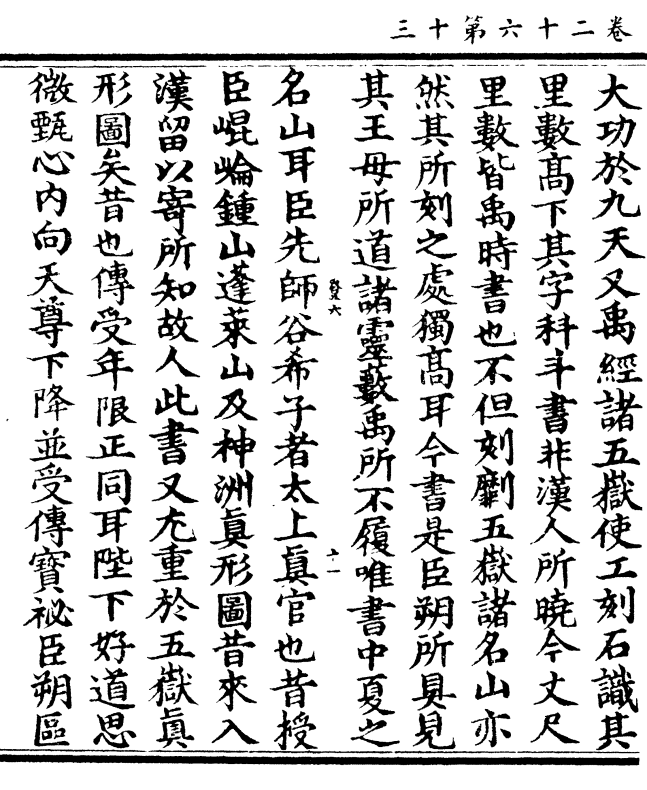 卷二十六第十三
大功於九天又禹經諸五嶽使工刻石識其
里數高下其字科斗書非漢人所曉今丈尺
里數皆禹時書也不但刻劚五嶽諸名山亦
然其所刻之處獨高耳今書是臣朔所具見
其王母所道諸靈藪禹所不履唯書中夏之
十一
名山耳臣先師谷希子者太上真官也昔授
臣崐崘鍾山蓬萊山及神洲眞形圖昔來入
漢留以寄所知故人此書又尤重於五嶽眞
形圖矣昔也傳受年限正同耳陛下好道思
微甄心內向天尊下降並受傳寶祕臣朔區